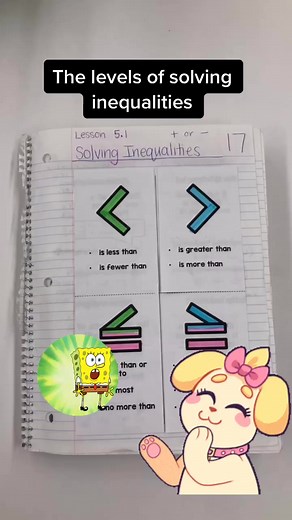 The levels of solving
inequalities
Lesson 5.1 + or -
Solving Inequalities 17
<
• is less than
• is fewer than
>
• is greater than
• is more than
≤
than or
to
most
no more than
≥